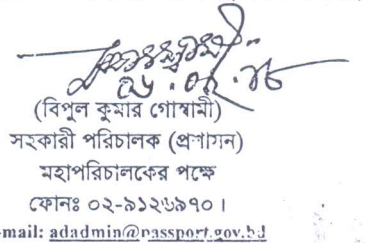 (বিপুল কুমার গোস্বামী)
সহকারী পরিচালক (প্রশাসন)
মহাপরিচালকের পক্ষে
ফোনঃ ০২-৯১২৬৯৭০।
-mail: adadmin@passport.gov.bd